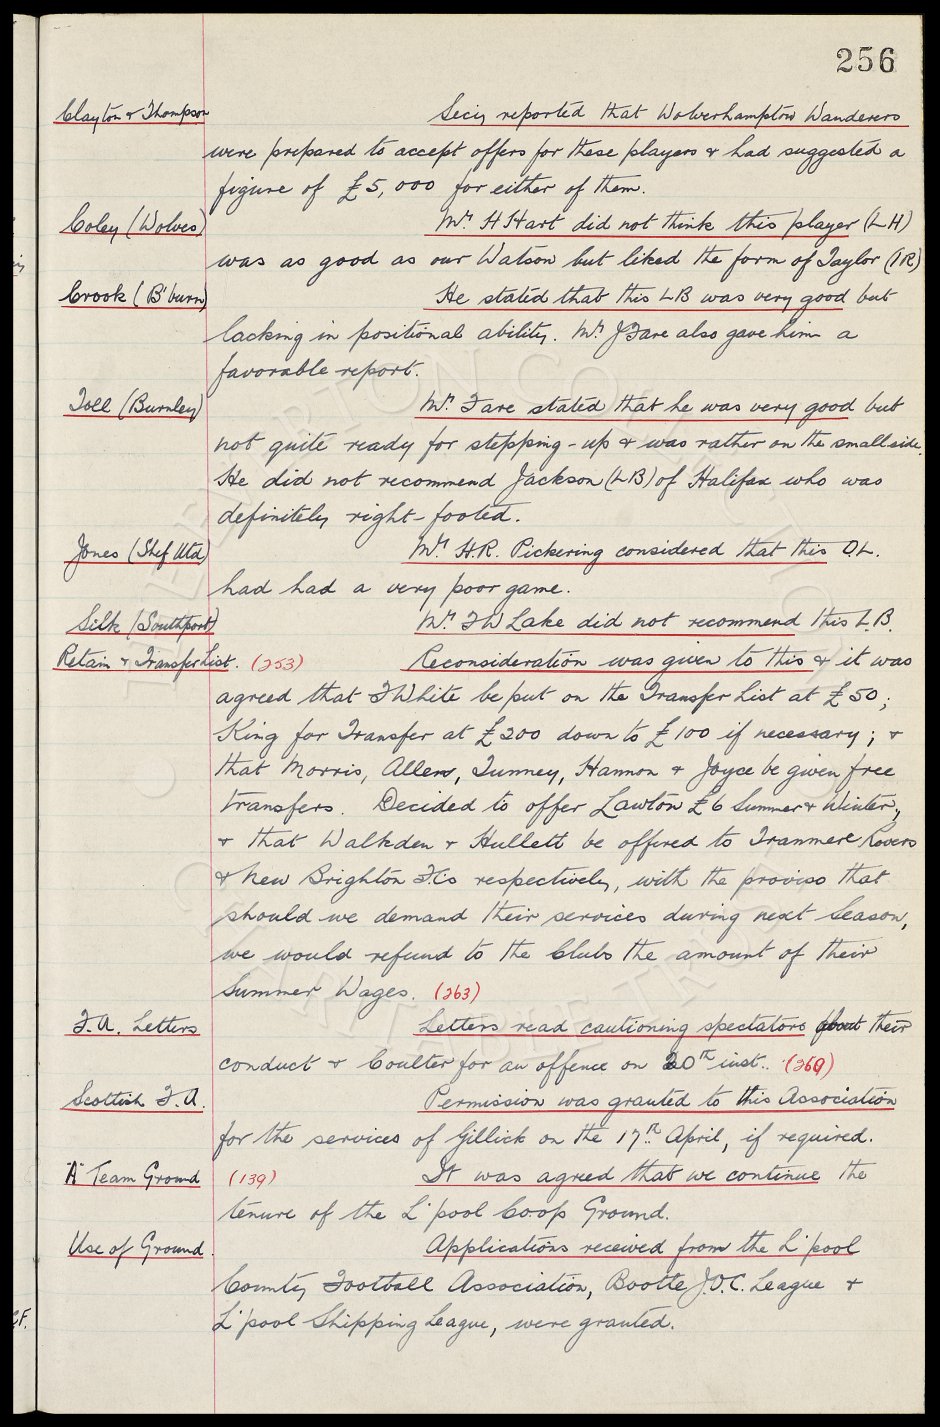 256
Clayton & Thompson Secy reported that Wolverhampton Wanderers
were prepared to accept offers for these players & had suggested a
figure of £5,000 for either of them.
Coley (Wolves) Mr. H Hart did not think this player (LH)
was as good as our Watson but liked the form of Taylor (IR)
Crook (B'burn) He stated that this LB was very good but
lacking in positional ability. Mr J Fare also gave him a
favorable report.
Toll (Burnley) Mr. Fare stated that he was very good but
not quite ready for stepping-up & was rather on the small side.
He did not recommend Jackson (LB) of Halifax who was
definitely right-footed.
Jones (Shef Utd) Mr. H.R. Pickering considered that this O.L.
had had a very poor game.
Silk (Southport) Mr. F W Lake did not recommend this L.B.
Retain & Transfer List. (253) Reconsideration was given to this & it was
agreed that T White be put on the Transfer List at £50;
King for Transfer at £200 down to £100 if necessary; &
that Morris, Allen, Tunney, Hannon & Joyce be given free
transfers. Decided to offer Lawton £6 Summer & Winter,
& that Walkden & Hullett be offered to Tranmere Rovers
& New Brighton F.Cs respectively, with the proviso that
should we demand their services during next Season,
we would refund to the Clubs the amount of their
Summer Wages. (263)
F.A. Letters Letters read cautioning spectators about their
conduct & Coulter for an offence on 20th inst.. (260)
Scottish F.A. Permission was granted to this Association
for the services of Gillick on the 17th April, if required.
"A" Team Ground (139) It was agreed that we continue the
tenure of the L'pool Co.ops Ground.
Use of Ground. Applications received from the L'pool
County Football Association, Bootle J.O.C. League &
L'pool Shipping League, were granted.